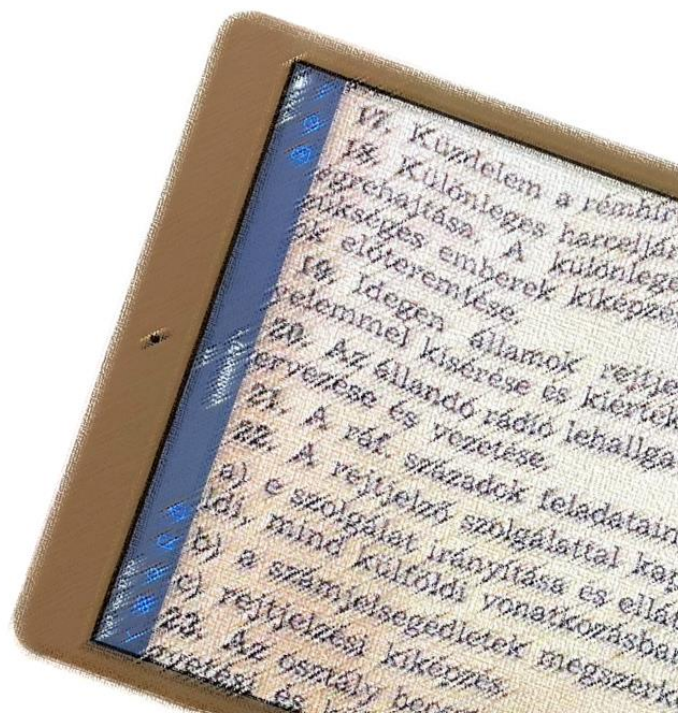 17. Küzdelem a rémhír
18. Különleges harceljár
égrehajtása. A különlege
zükséges emberek kiképzé
ok előteremtése.
19. Idegen államok rejtje
yelemmel kisérése és kiérték
20. Az állandó rádió lehallga
ervezése és vezetése.
21. A ráf. századok feladatain
22. A rejtjelző szolgálattal kap
a) e szolgálat irányítása és ellá
ldi, mind külföldi vonatkozásban
b) a számjelsegédletek megszerk
c) rejtjelzési kiképzés.
23. Az osztály
és